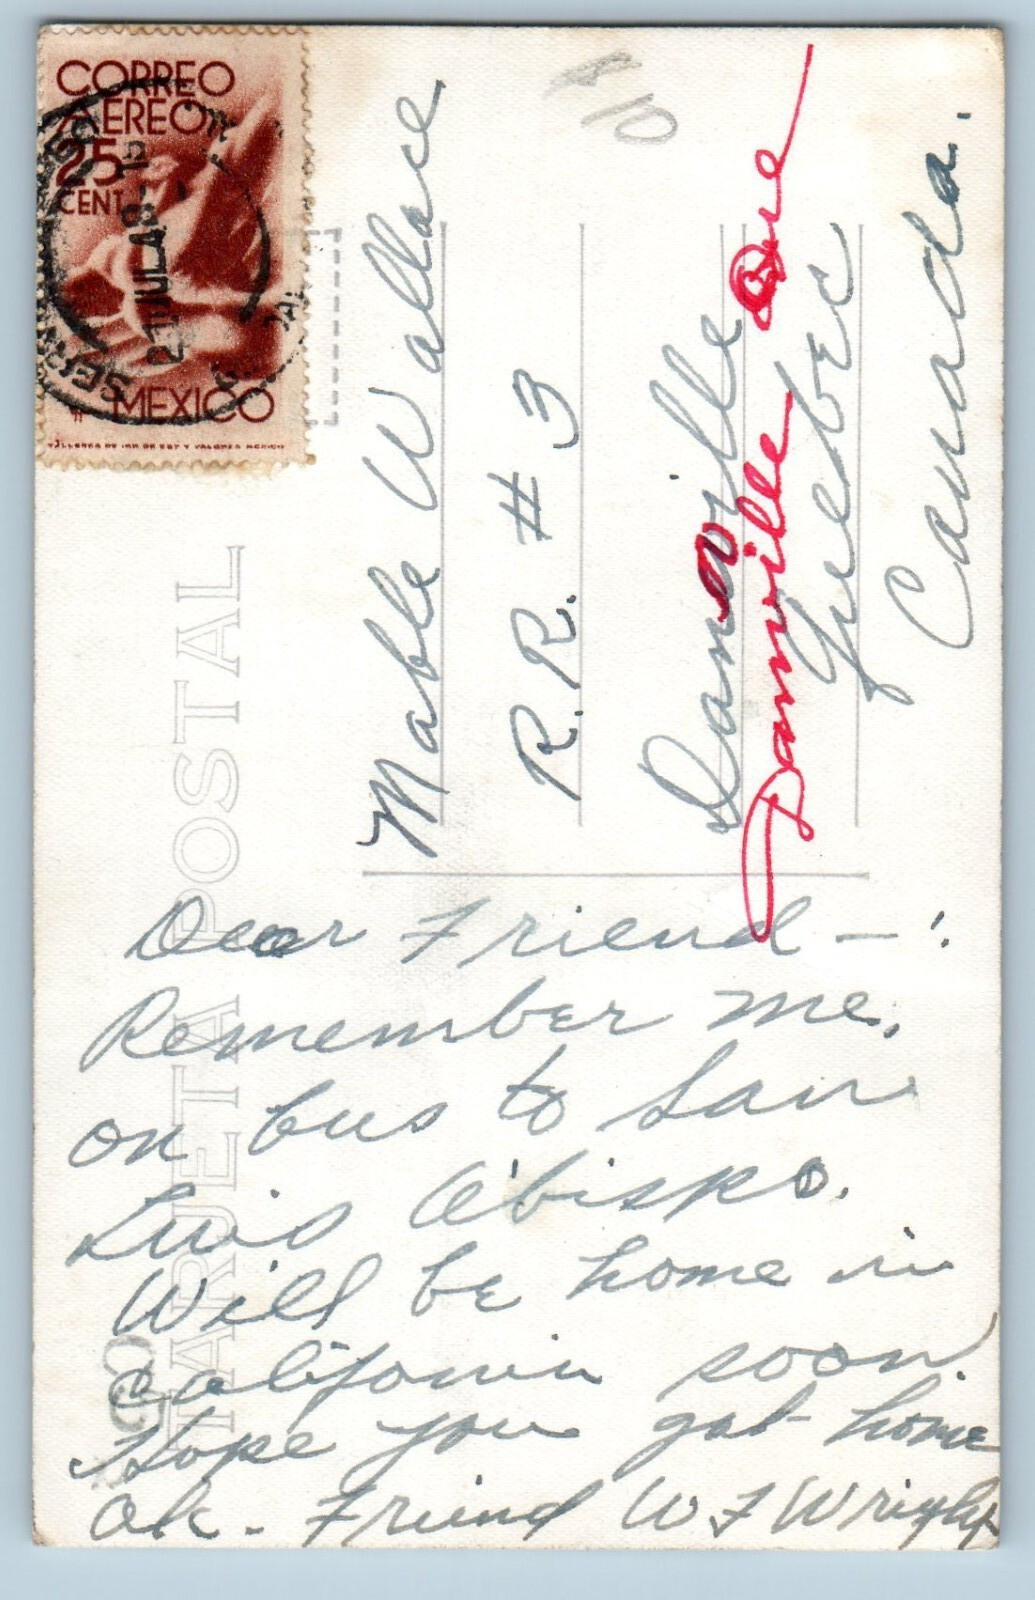 CORREO
AEREO
25
CENT
21 JUL 48
MEXICO
TALLERES DE IMP. DE EST. Y VALORES MEXICO
TARJETA POSTAL
Mable Wallace
R.R. #3
Danville
Danville Que
Quebec
Canada.
Dear Friend —:
Remember me,
on bus to San
Luis Obispo.
Will be home in
California soon.
Hope you got home
Ok. Friend W F Wright